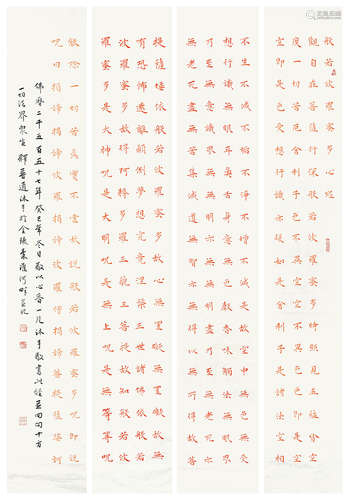 般若波羅蜜多心經
觀自在菩薩行深般若波羅蜜多時照見五蘊皆空
度一切苦厄舍利子色不異空空不異色色即是空
空即是色受想行識亦復如是舍利子是諸法空相
不生不滅不垢不淨不增不減是故空中無色無受
想行識無眼耳鼻舌身意無色聲香味觸法無眼界
乃至無意識界無無明亦無無明盡乃至無老死亦
無老死盡無苦集滅道無智亦無得以無所得故菩
提薩埵依般若波羅蜜多故心無罣礙無罣礙故無
有恐怖遠離顛倒夢想究竟涅槃三世諸佛依般若
波羅蜜多故得阿耨多羅三藐三菩提故知般若波
羅蜜多是大神呪是大明呪是無上呪是無等等呪
能除一切苦真實不虛故說般若波羅蜜多呪即說
呪曰揭諦揭諦波羅揭諦波羅僧揭諦菩提薩婆訶
佛曆二千五百五十七年癸巳年冬日敬以心香一片沐手敬書以並回向十方
一切法界眾生 釋普道沐手於金陵秦淮河畔並記